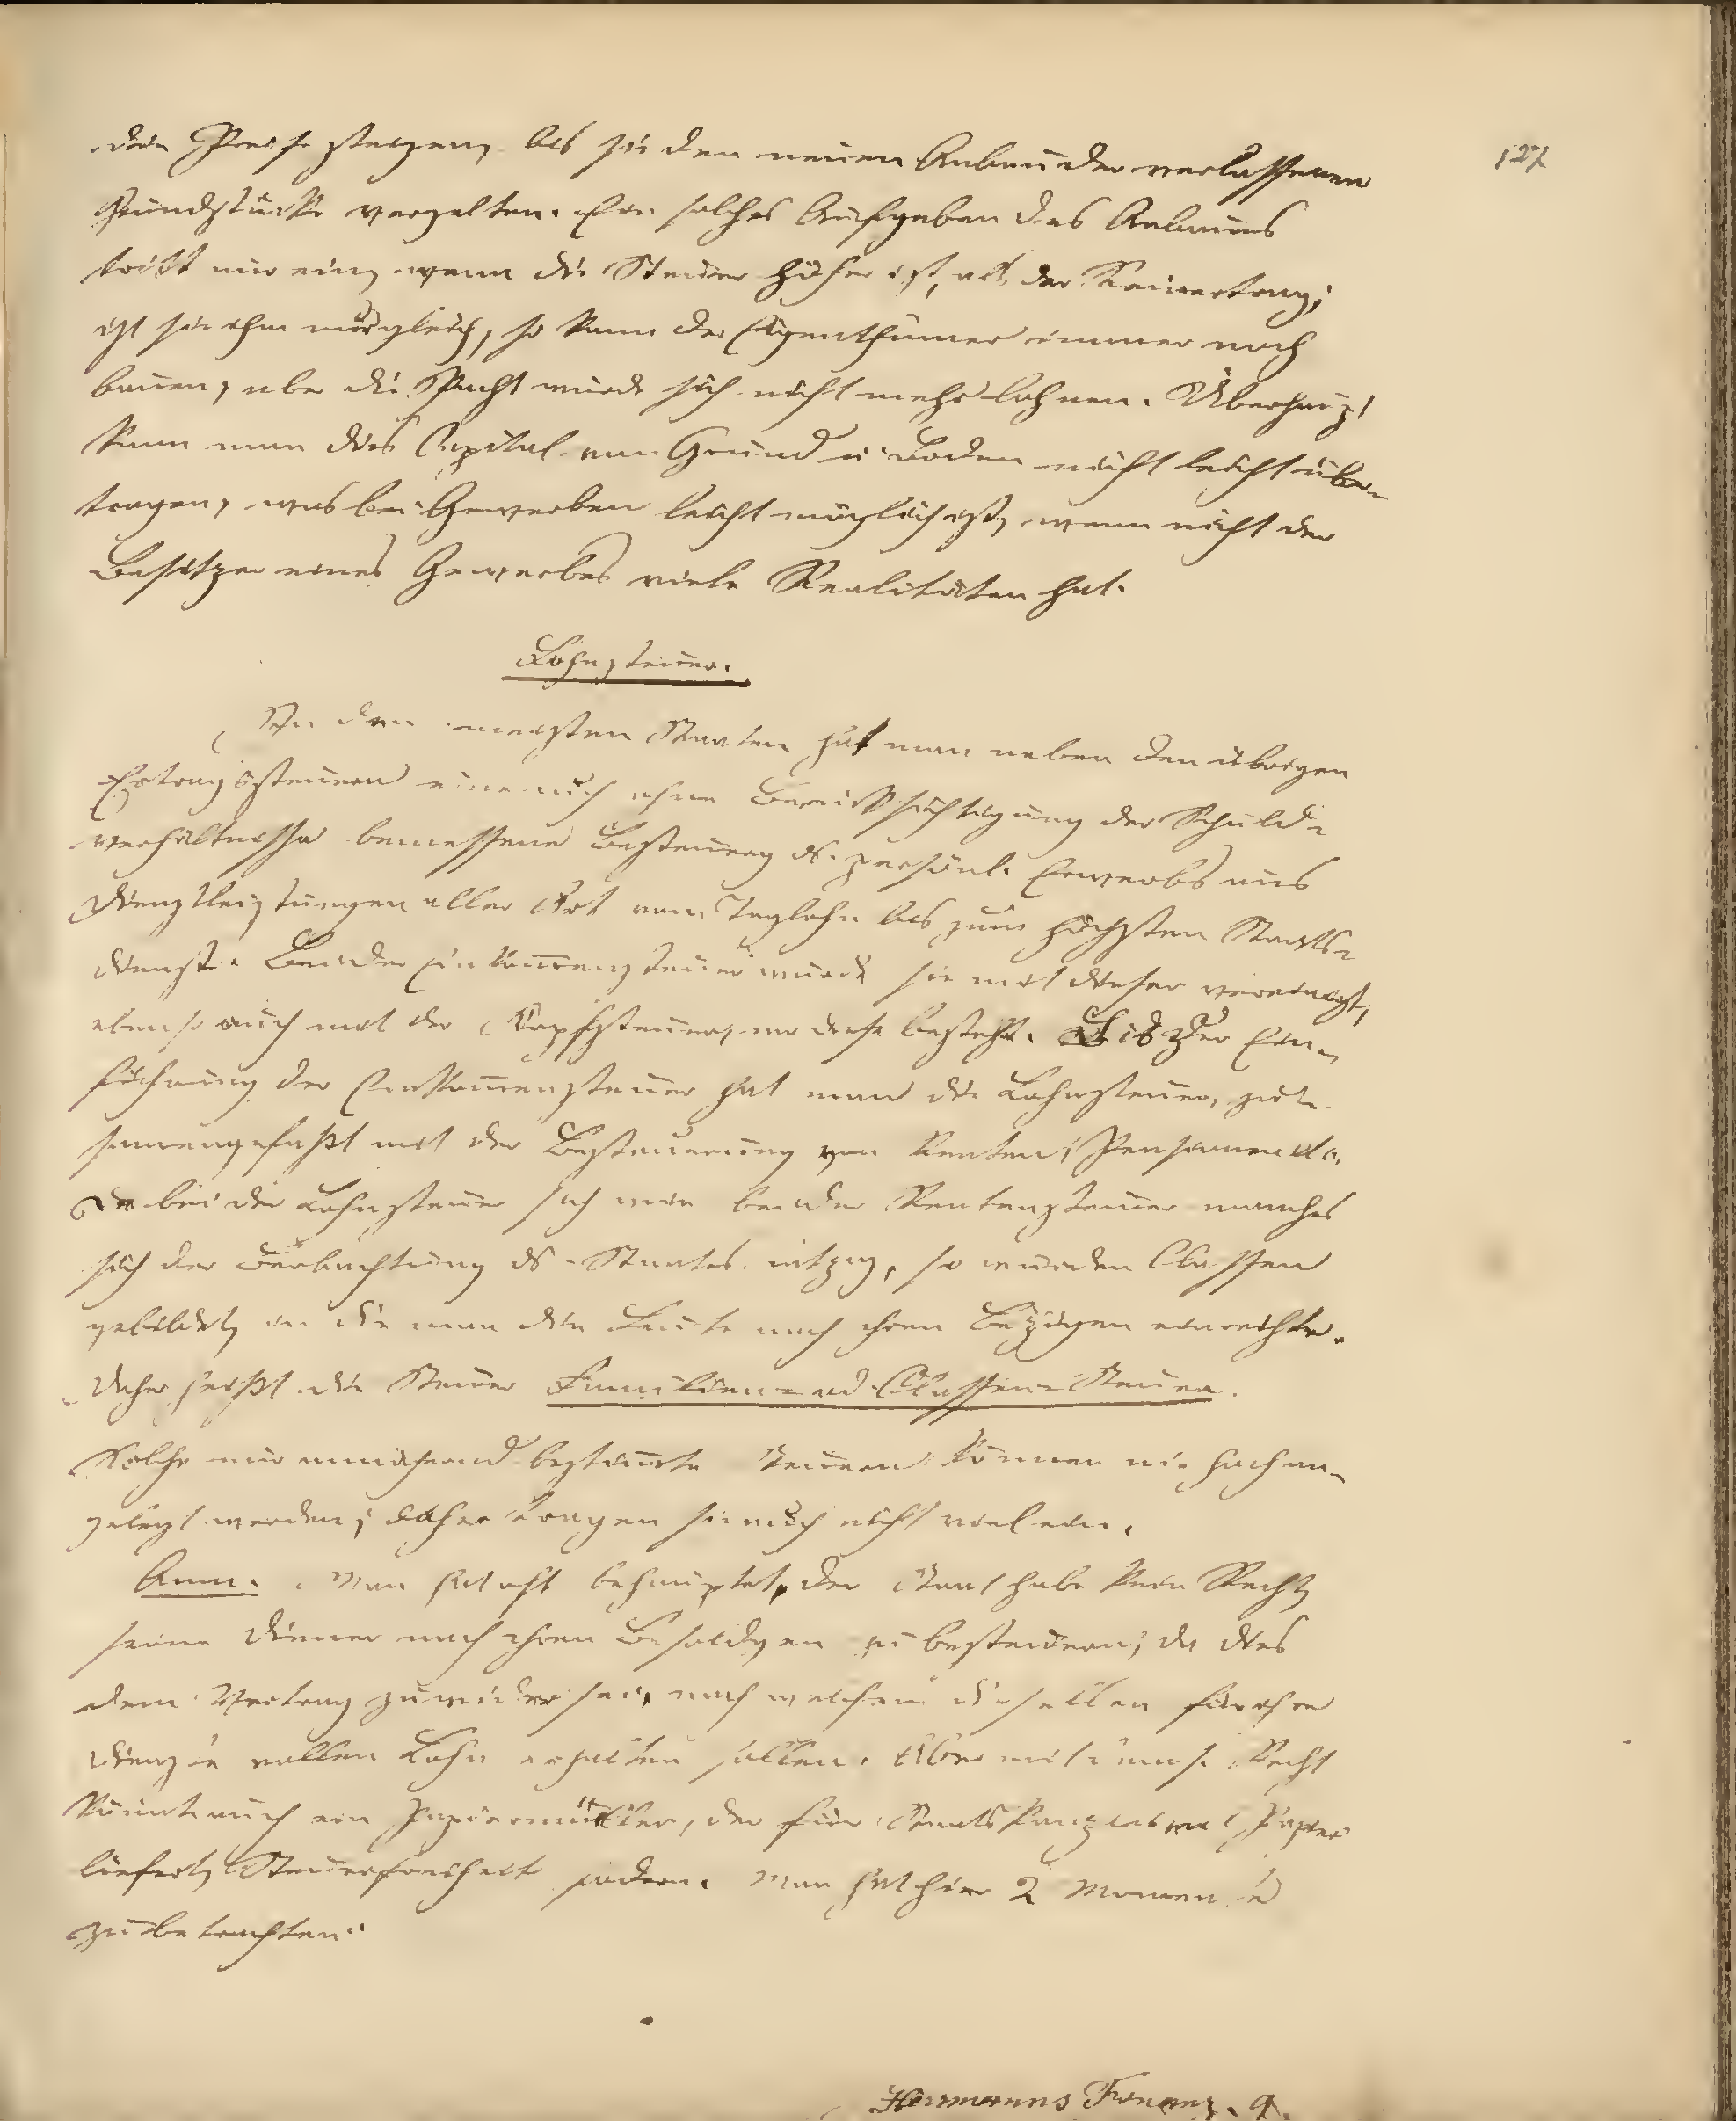 127
die Preise steigen, bis sie den neuen Anbau der verlassenen
Grundstücke vergelten. Ein solches Aufgeben des Anbaues
tritt nur ein, wenn die Steuer höher ist, als der Reinertrag;
ist sie ihm nur gleich, so kann der Eigenthümer immer noch
bauen, aber die Pacht würde sich nicht mehr lohnen. Überhaupt
kann man das Capital von Grund u. Boden nicht leicht über-
tragen, was bei Gewerben leicht möglich ist, wenn nicht der
Besitzer eines Gewerbes viele Realitäten hat.
Lohnsteuer.
In den meisten Staaten hat man neben den übrigen
Ertragssteuern eine auch ohne Berücksichtigung der Schuld-
verhältnisse bemessene Besteuerg ds. persönl. Erwerbs aus
Dienstleistungen aller Art vom Taglohn bis zum höchsten Staats-
dienst. Bei der Einkommensteuer wurde sie mit dieser vereinigt,
ebenso auch mit der Kopfsteuer, wo diese besteht. Bis zur Ein-
führung der Einkommensteuer hat man die Lohnsteuer, zu-
sammengefaßt mit der Besteuerung von Renten, Pensionen etc.
Da bei der Lohnsteuer sich wie bei der Rentensteuer manches
sich der Beobachtung ds. Staates entzog, so wurden Classen
gebildet, in die man die Leute nach ihren Bezügen einreihte.
Daher heißt die Steuer Familien- od. Classen-Steuer.
Solche nur annähernd bestimmte Steuern können nie hoch an-
gelegt werden; daher tragen sie auch nicht viel ein.
Anm. Man hat oft behauptet, der Staat habe kein Recht,
seine Diener nach ihren Besoldgen zu besteuern, da dies
dem Vertrag zuwider sei, nach welchem dieselben für ihre
Dienste vollen Lohn erhalten sollen. Aber mit dems. Recht
könnte auch ein Papiermüller, der für Staatskanzleien Papier
liefert, Steuerfreiheit fodern. Man hat hier 2 Momente
zu betrachten:
Hermanns Finanz. 9.